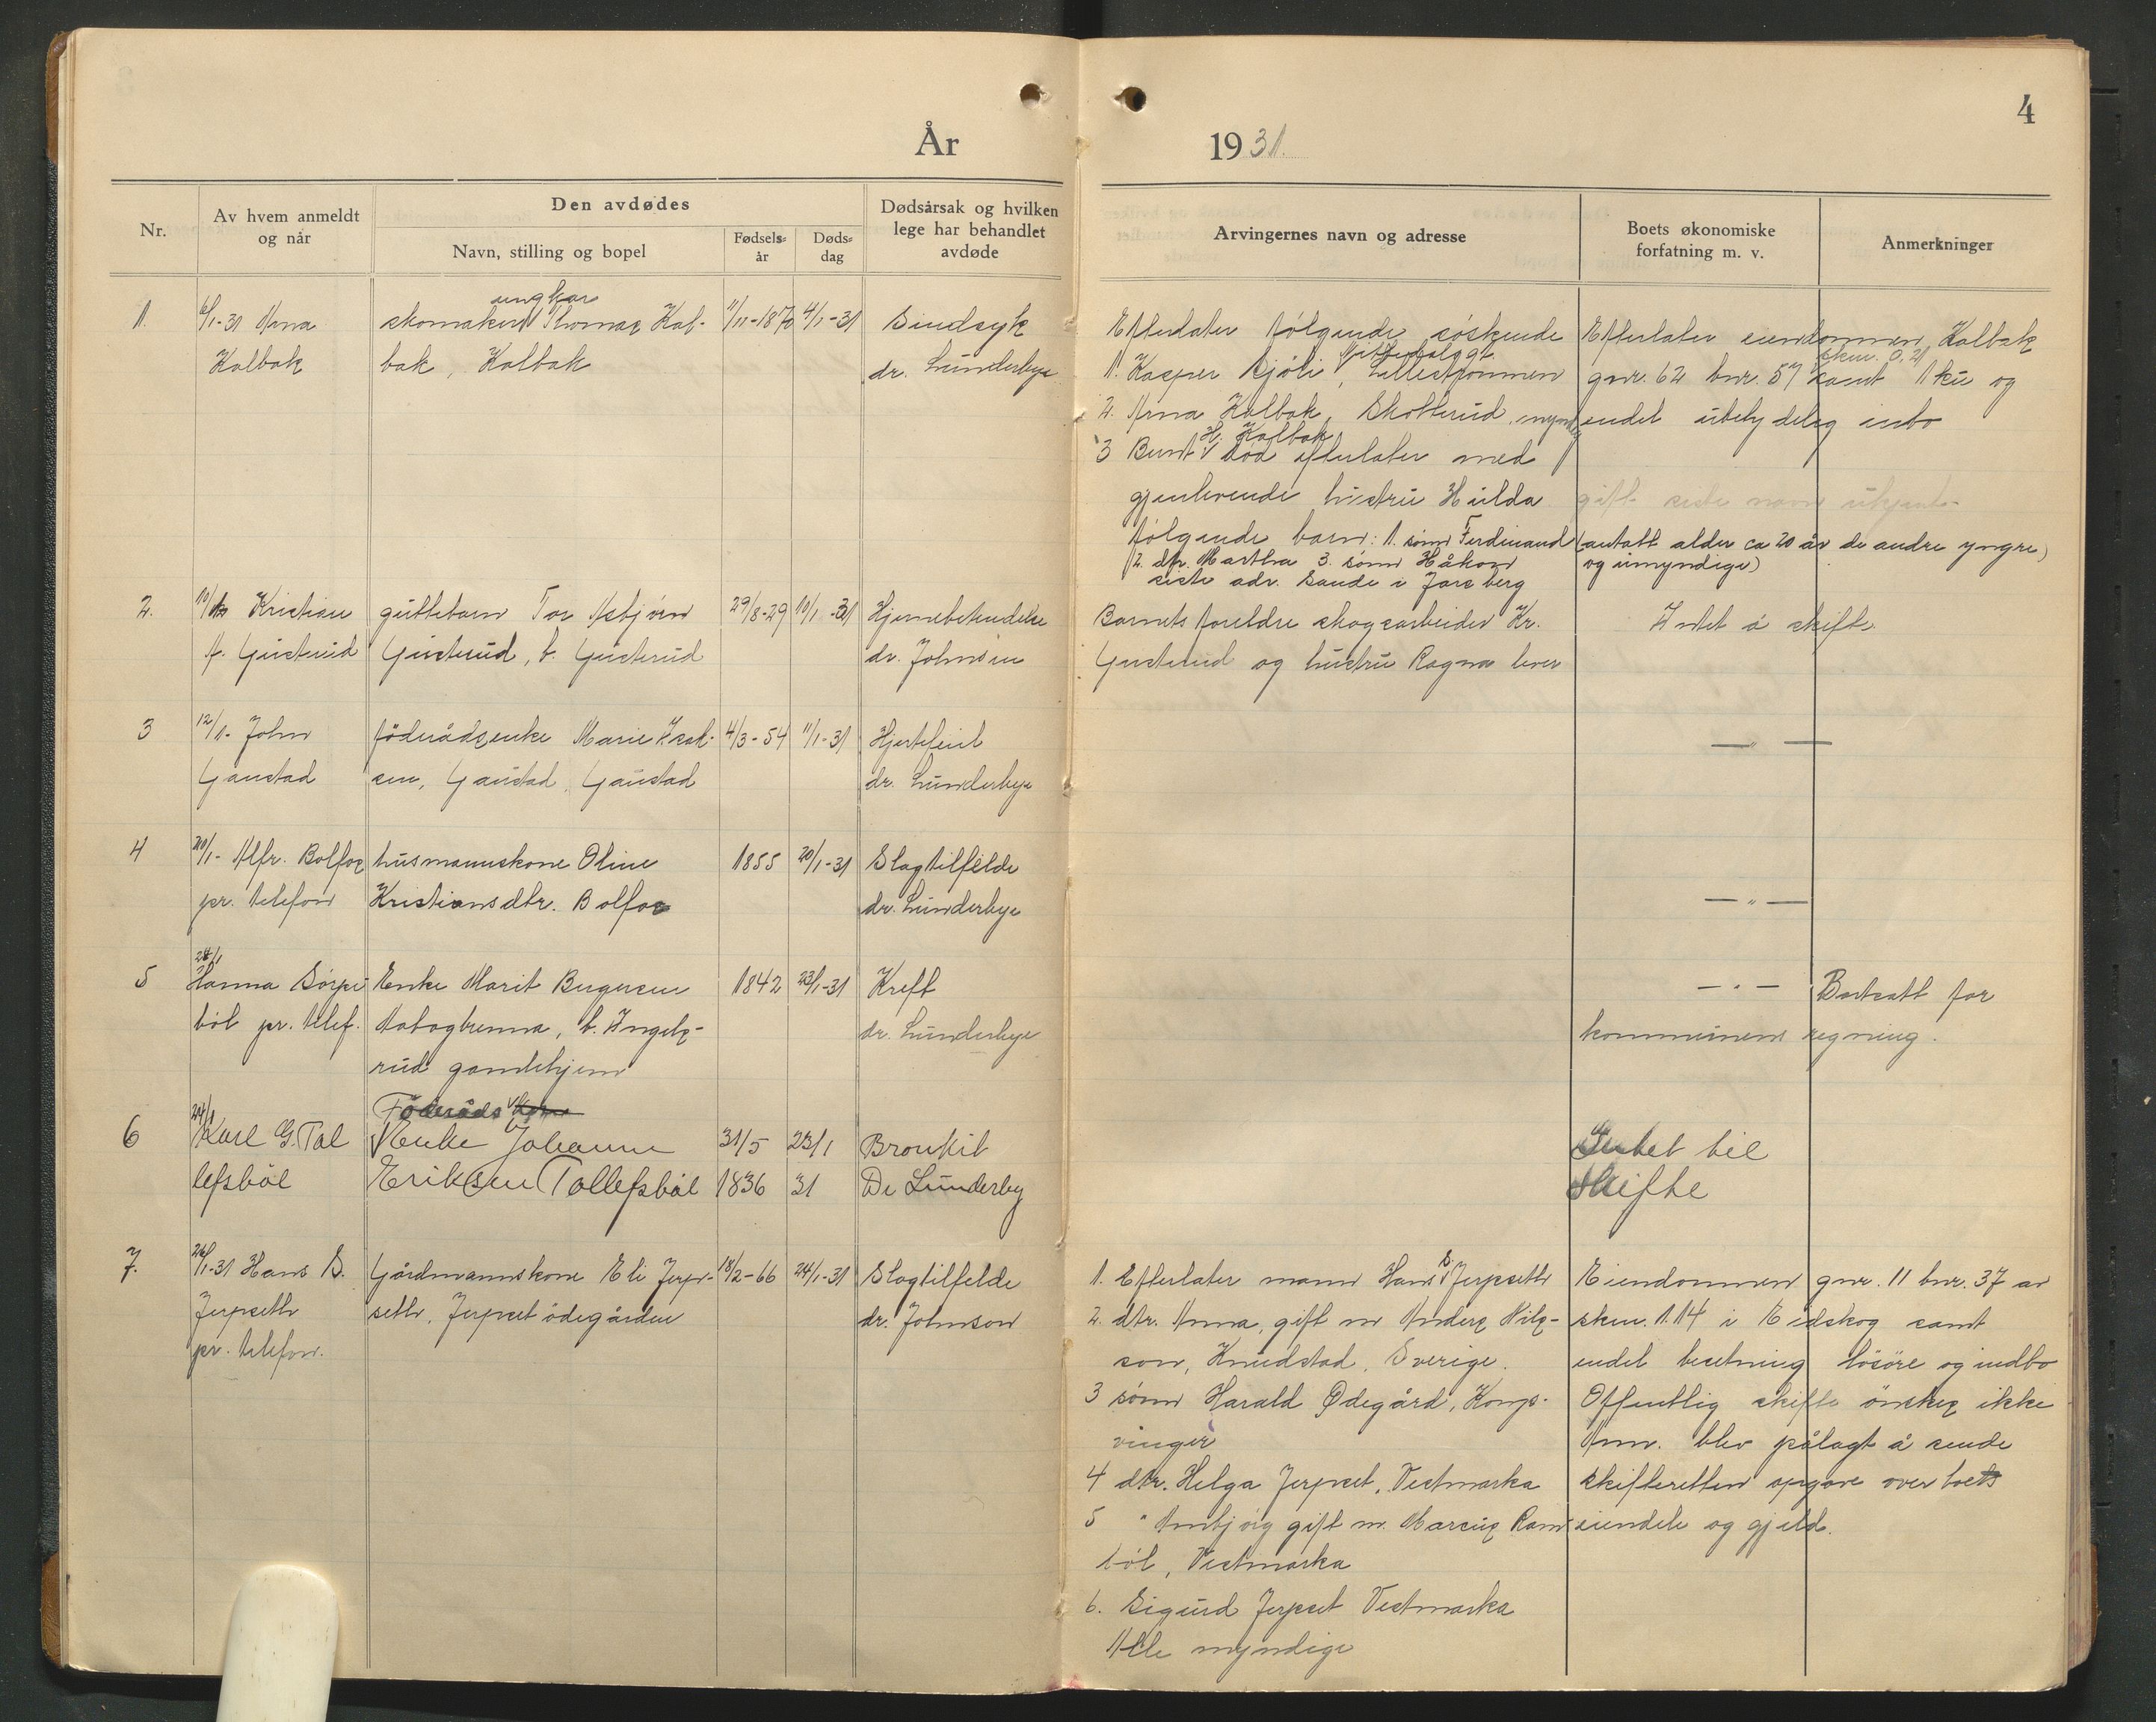 4
År 1931.
Nr.
Av hvem anmeldt
og når
Den avdødes
Navn, stilling og bopel
Fødsels-
år
Døds-
dag
Dødsårsak og hvilken
lege har behandlet
avdøde
Arvingernes navn og adresse
Boets økonomiske
forfatning m. v.
Anmerkninger
1. 6/1-31 Arna
Kalbak
ungkar
skomaker Thomas Kal-
bak, Kalbak
11/11-1870 4/1-31
Sindsyk
dr. Lunderbye
Efterlater følgende søskende
1. Kasper Kjöli, Lillestrømmen
2. Arna Kalbak, Skotterud, myndig
H. Kalbak
3 Bernt død efterlater med
gjenlevende hustru Hulda
følgende barn: 1. sønn Ferdinand
2. dtr. Martha 3. sønn Håkon
siste adr. Sande i Jarlsberg
Efterlater eiendommen Kalbak
skm. 0.21
gnr. 62 bnr. 57 samt 1 ku og
endel ubetydelig inbo
(antatt alder ca 20 år de andre yngre)
og umyndige)
2. 10/1 Kristian
A. Gusterud
guttebarn Tor Asbjørn
Gusterud, b. Gusterud
29/8-29 10/1-31
Hjernebetendelse
dr. Johnsen
Barnets foreldre skogsarbeider Kr.
Gusterud og hustru Ragna lever
Intet å skifte
3 12/1- John
Gaustad
föderådsenke Marie Isak-
sen, Gaustad, Gaustad
4/3-54 11/1-31
Hjertefeil
dr. Lunderbye
— " —
4 20/1- Alfr. Bolfos
pr. telefon
husmannskone Oline
Kristiansdtr. Bolfos
1855 20/1-31
Slagtilfelde
dr. Lunderbye
— " —
5 24/1
Hanna Sörpe-
böl pr. telef.
Enke Marit Bergersen
Tobogbrenna, b. Ingels-
rud gamlehjem
1842 23/1-31
Kreft
dr. Lunderbye
— " — Bortsatt for
kommunens regning.
6 24/1
Karl G. Tol
lefsböl
Föderåds
Enke Johanne
Eriksen Tollefsböl
31/5 23/1
1836 31
Bronkit
Dr Lunderby
Intet til
Skifte
7. 26/1-31 Hans S.
Jerpseth
pr. telefon.
Gårdmannskone Eli Jerp-
seth, Jerpset ödegården
18/2-66 24/1-31
Slagtilfelde
dr. Johnson
1. Efterlater mann Hans S. Jerpseth
2. dtr. Anna, gift m Anders Nils-
son, Knudstad, Sverige.
3 sönn Harald Ödegård, Kongs-
vinger
4 dtr. Helga Jerpset, Vestmarka
5 " Ambjörg gift m. Marcus Ram-
böl, Vestmarka
6. Sigurd Jerpset Vestmarka
Alle myndige
Eiendommen gnr. 11 bnr. 37 av
skm. 1.14 i Eidskog samt
endel besetning lösöre og indbo
Offentlig skifte önskes ikke
Anm. blev pålagt å sende
skifteretten opgave over boets
eiendele og gjeld.